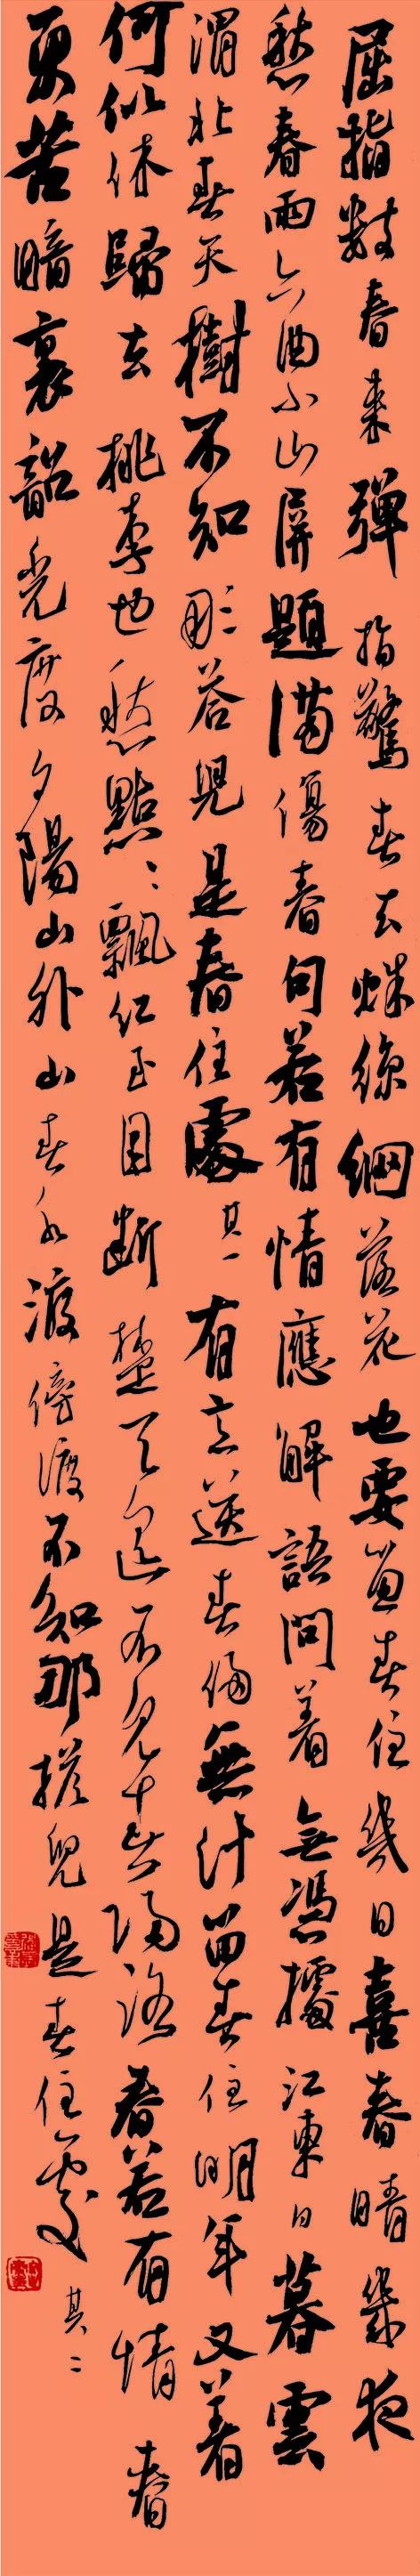 屈指數春来彈指驚春去蛛絲網落花也要留春住幾日喜春晴幾夜
愁春雨六曲小山屏題滿傷春句若有情應解語問着無憑據江東日暮雲
渭北春天樹不知那荅兒是春住處其一有意送春歸無計留春住明年又着
何似休歸去桃李也愁點點飄紅玉目斷楚天遥不見春歸路春若有情春
更苦暗裏韶光度夕陽山外山春水渡傍渡不知那搭兒是春住處其二